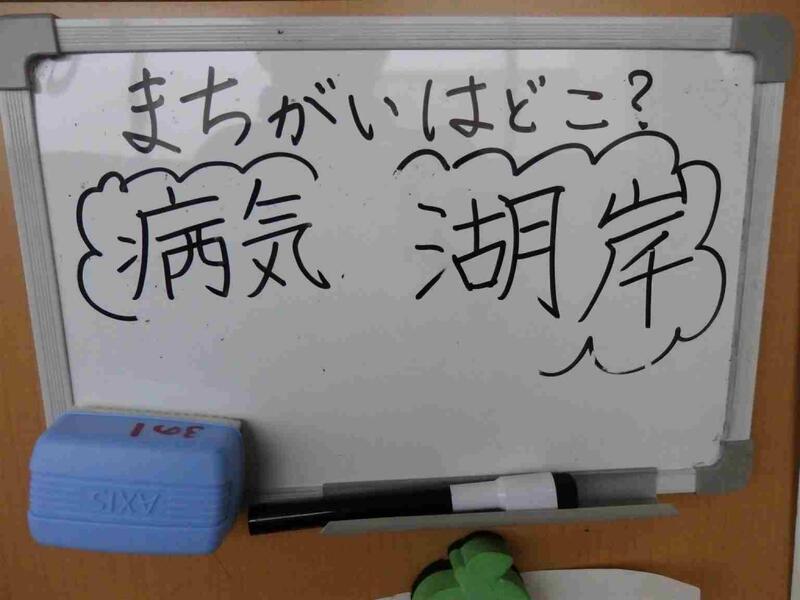 まちがいはどこ?
病気 湖岸
3の1
AXIS